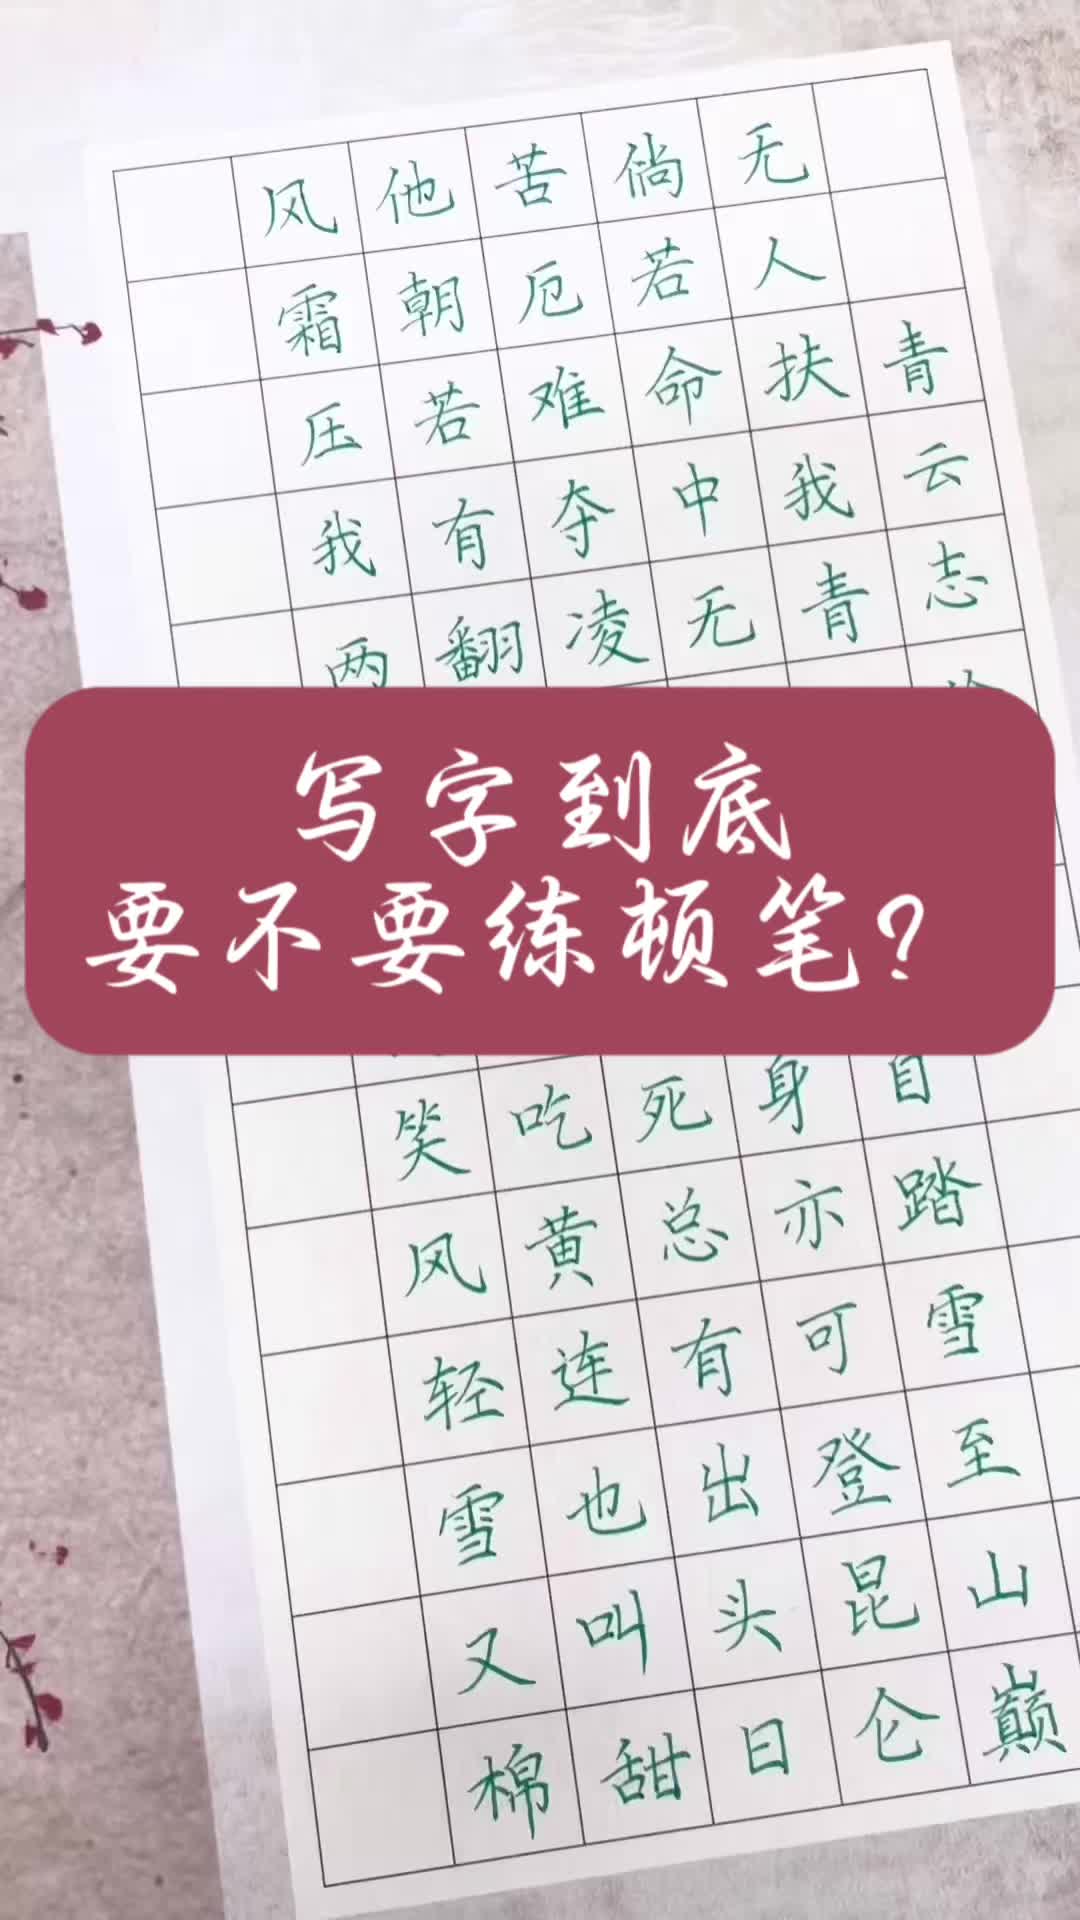 写字到底
要不要练顿笔?
青云志
无人扶我青
自踏雪至山巅
倘若命中无
身亦可登昆仑
苦厄难夺凌
死总有出头日
他朝若有翻
吃黄连也叫甜
风霜压我两
笑风轻雪又棉